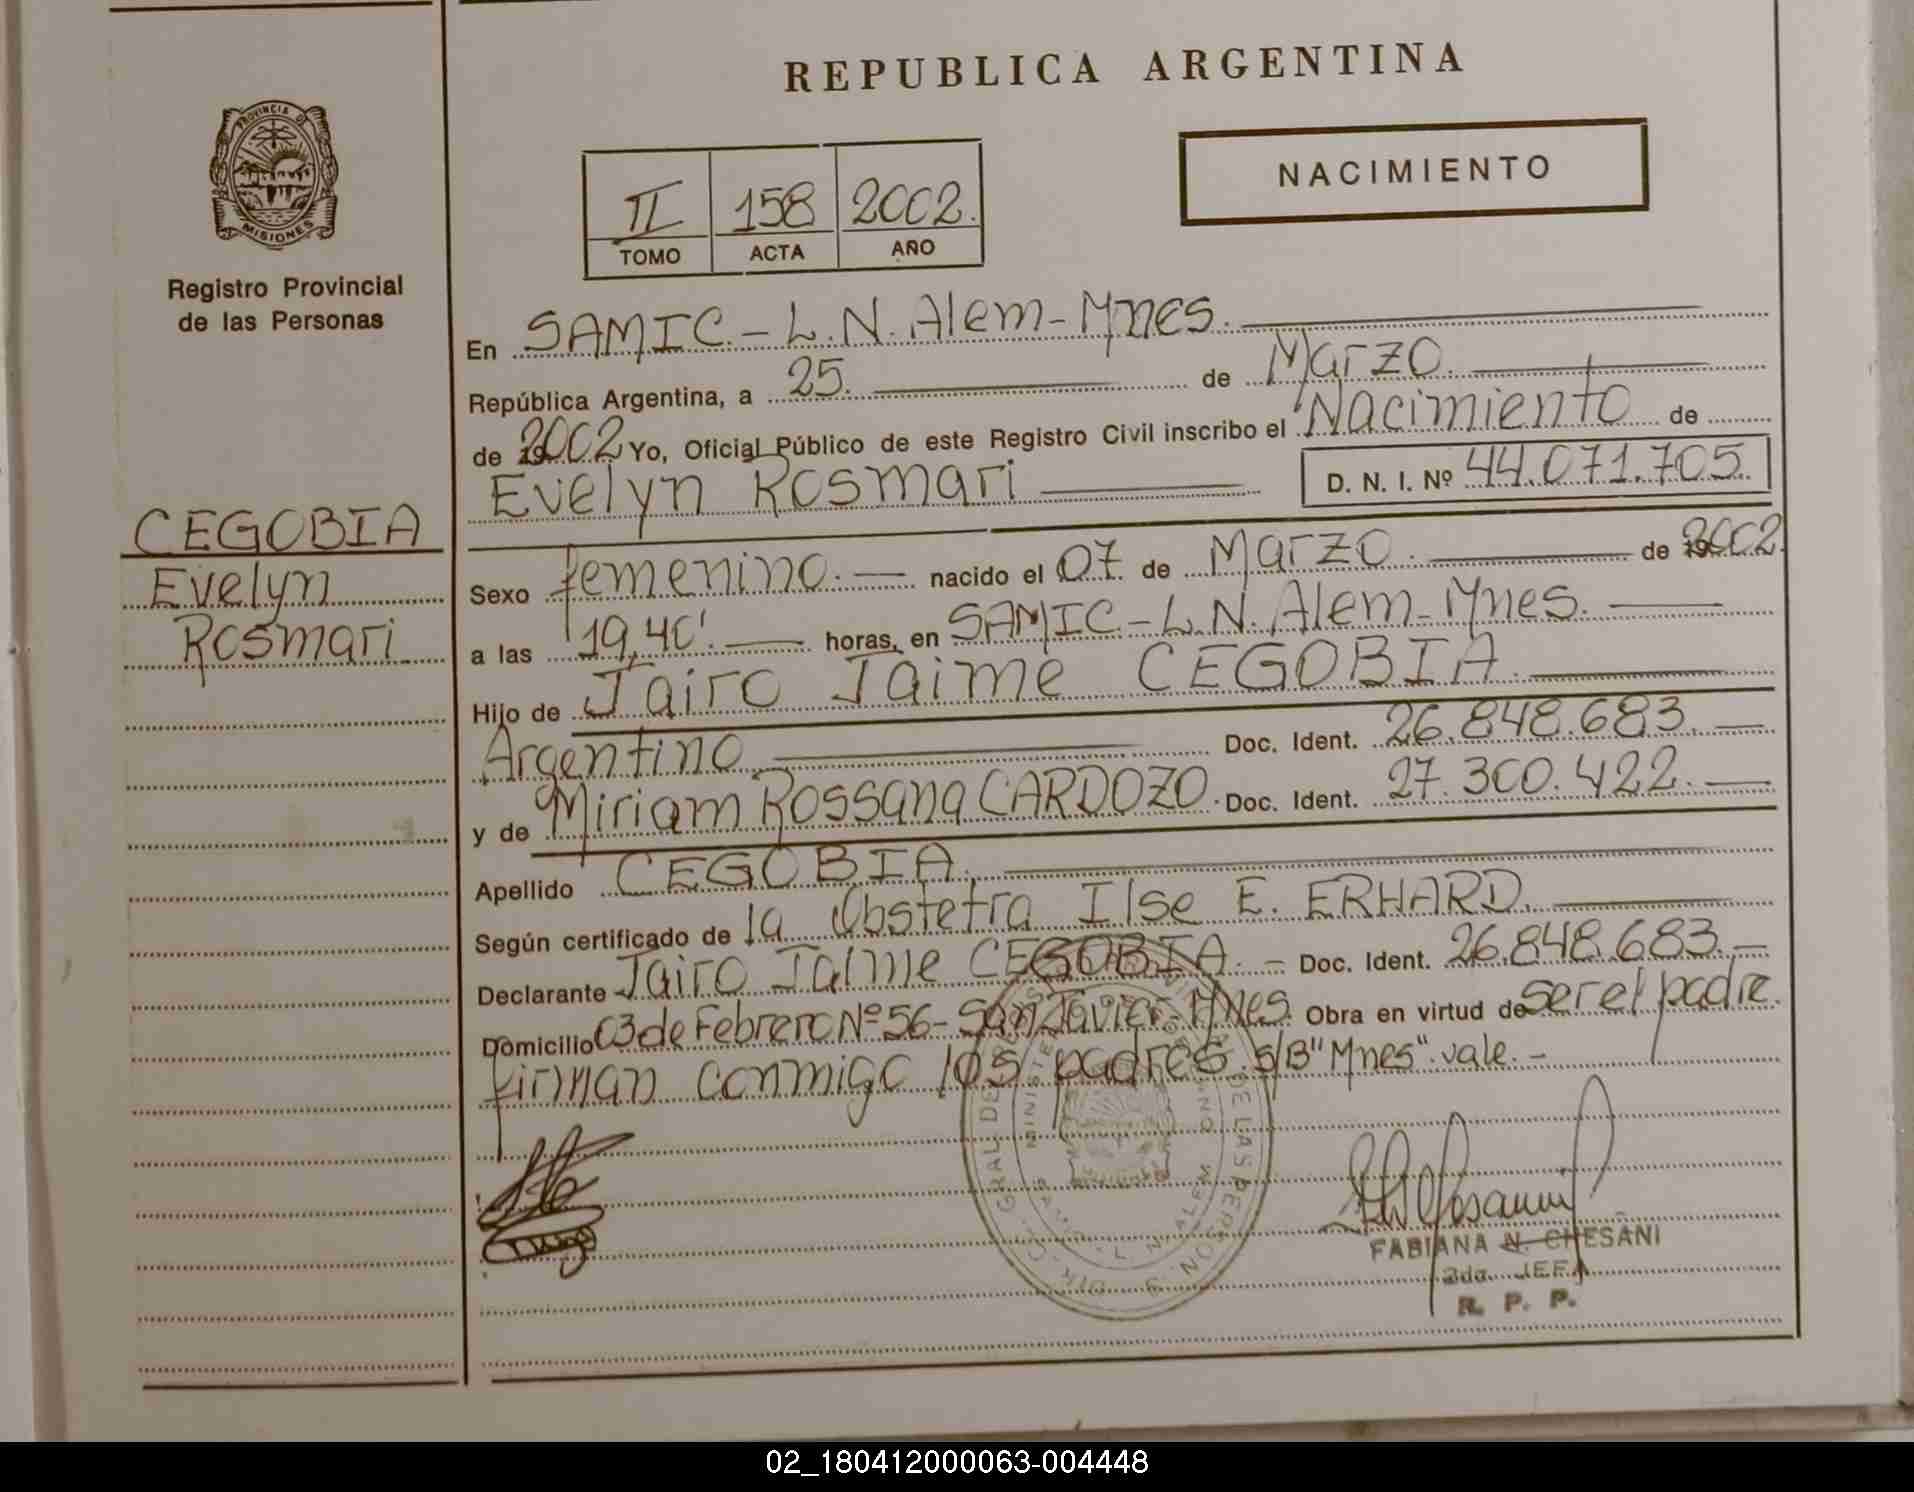 REPUBLICA ARGENTINA
PROVINCIA DE
MISIONES
Registro Provincial
de las Personas
NACIMIENTO
II 158 2002.
TOMO ACTA AÑO
En SAMIC.-L.N.Alem-Mnes.
República Argentina, a 25. de Marzo.
de 2002 Yo, Oficial Público de este Registro Civil inscribo el Nacimiento de
Evelyn Rosmari D. N. I. Nº 44.071.705.
CEGOBIA
Evelyn
Rosmari
Sexo femenino. nacido el 07 de Marzo. de 2002.
a las 19,40'. horas, en SAMIC.-L.N.Alem-Mnes.
Hijo de Jairo Jaime CEGOBIA.
Argentino Doc. Ident. 26.848.683.
y de Miriam Rossana CARDOZO. Doc. Ident. 27.300.422.
Apellido CEGOBIA.
Según certificado de la Obstetra Ilse E. ERHARD.
Declarante Jairo Jaime CEGOBIA. Doc. Ident. 26.848.683.
Domicilio 03 de Febrero Nº 56- San Javier- Mnes. Obra en virtud de ser el padre.
firman conmigo los padres. S/B "Mnes". vale.-
FABIANA N. CHESANI
2da. JEFA
R. P. P.
02_180412000063-004448